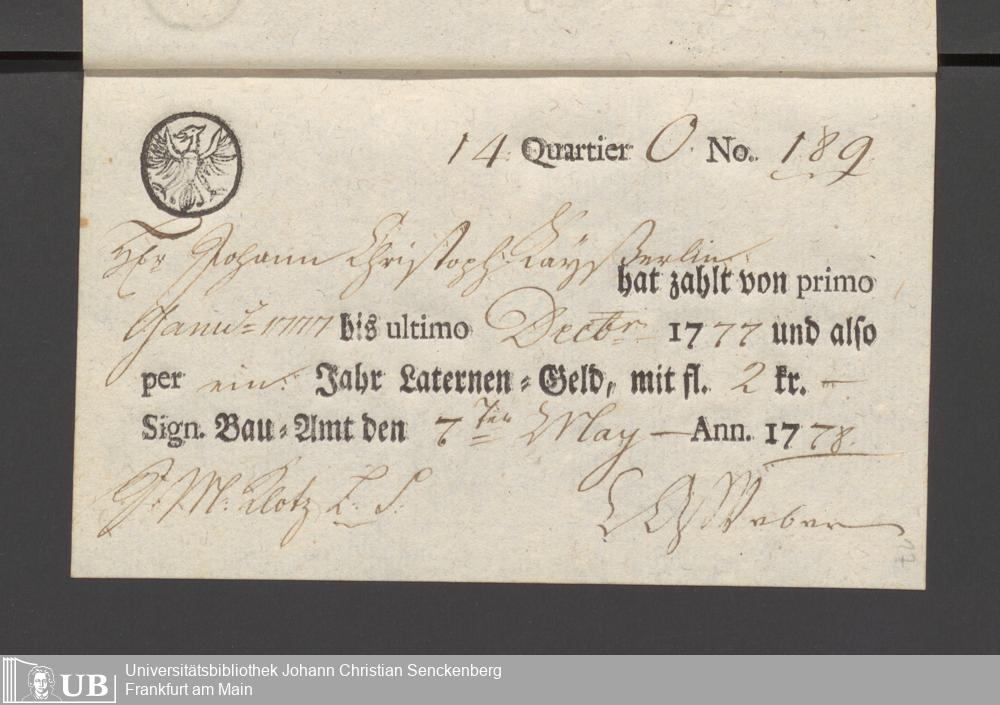 14. Quartier O. No. 189.
Hr Johann Christoph Kayß Berlin
hat zahlt von primo
Januar 1777 bis ultimo Decbr. 1777 und also
per ein Jahr Laternen-Geld, mit fl. 2 kr. –
Sign. Bau-Amt den 7ten May – Ann. 1778.
J. M. Klotz
Weber
77
Universitätsbibliothek Johann Christian Senckenberg
Frankfurt am Main
UB